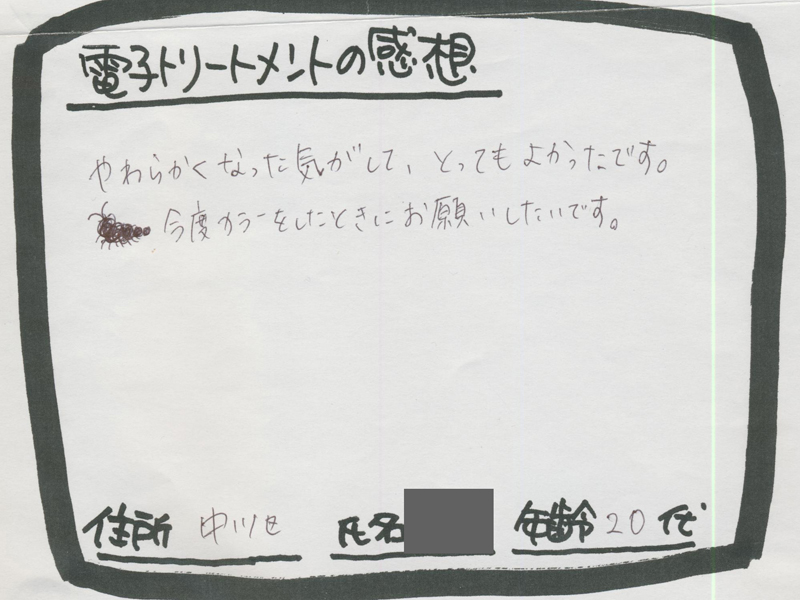 電子トリートメントの感想
やわらかくなった気がして、とってもよかったです。
今度カラーをしたときにお願いしたいです。
住所 中川区 氏名 年齢 20代